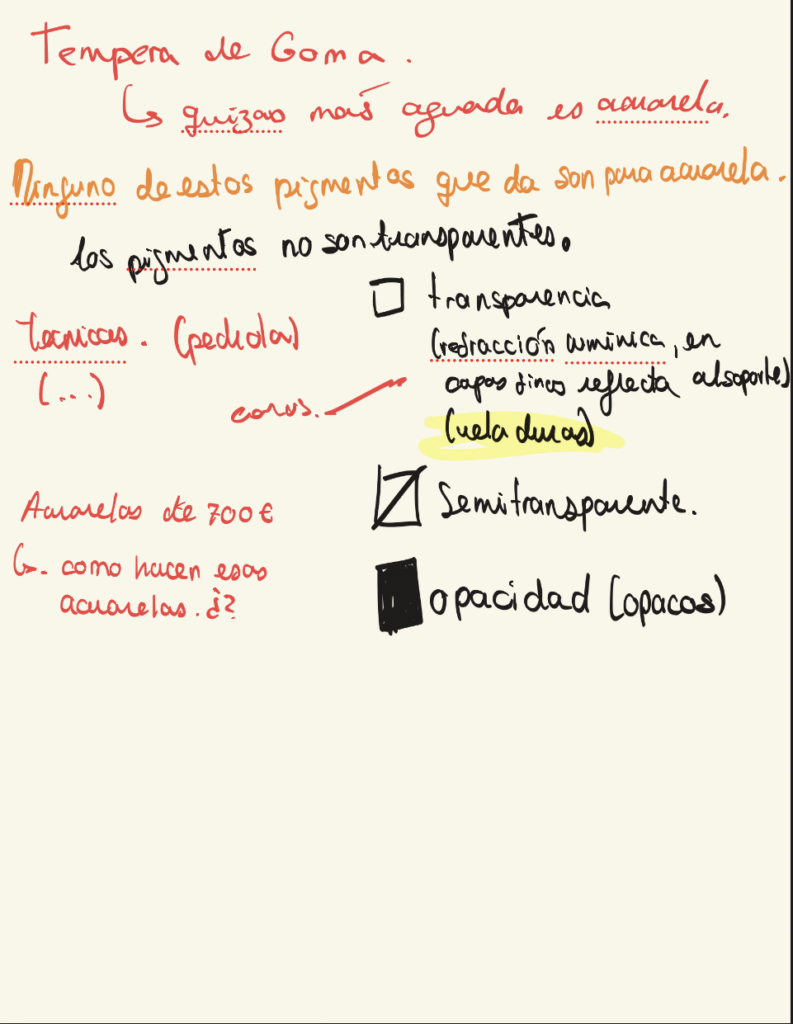 Tempera de Goma.
↳ quizas mas aguada es acuarela.
Ninguno de estos pigmentos que da son para acuarela.
los pigmentos no son transparentes.
transparencia
(refracción luminica, en
capas finas reflecta al soporte)
(veladuras)
Semitransparente.
opacidad (opacos)
Tecnicas. (pedrola)
(...)
caros.
Acuarelas de 700€
↳. como hacen esas
acuarelas. ¿?